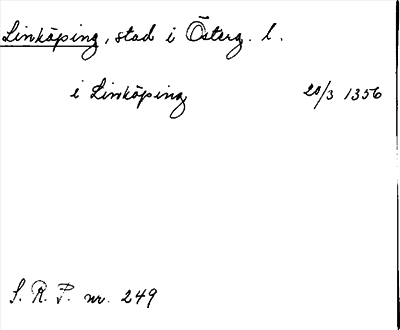 Linköping, stad i Österg. l.
i Linköping 20/3 1356
S. R. P. nr. 249